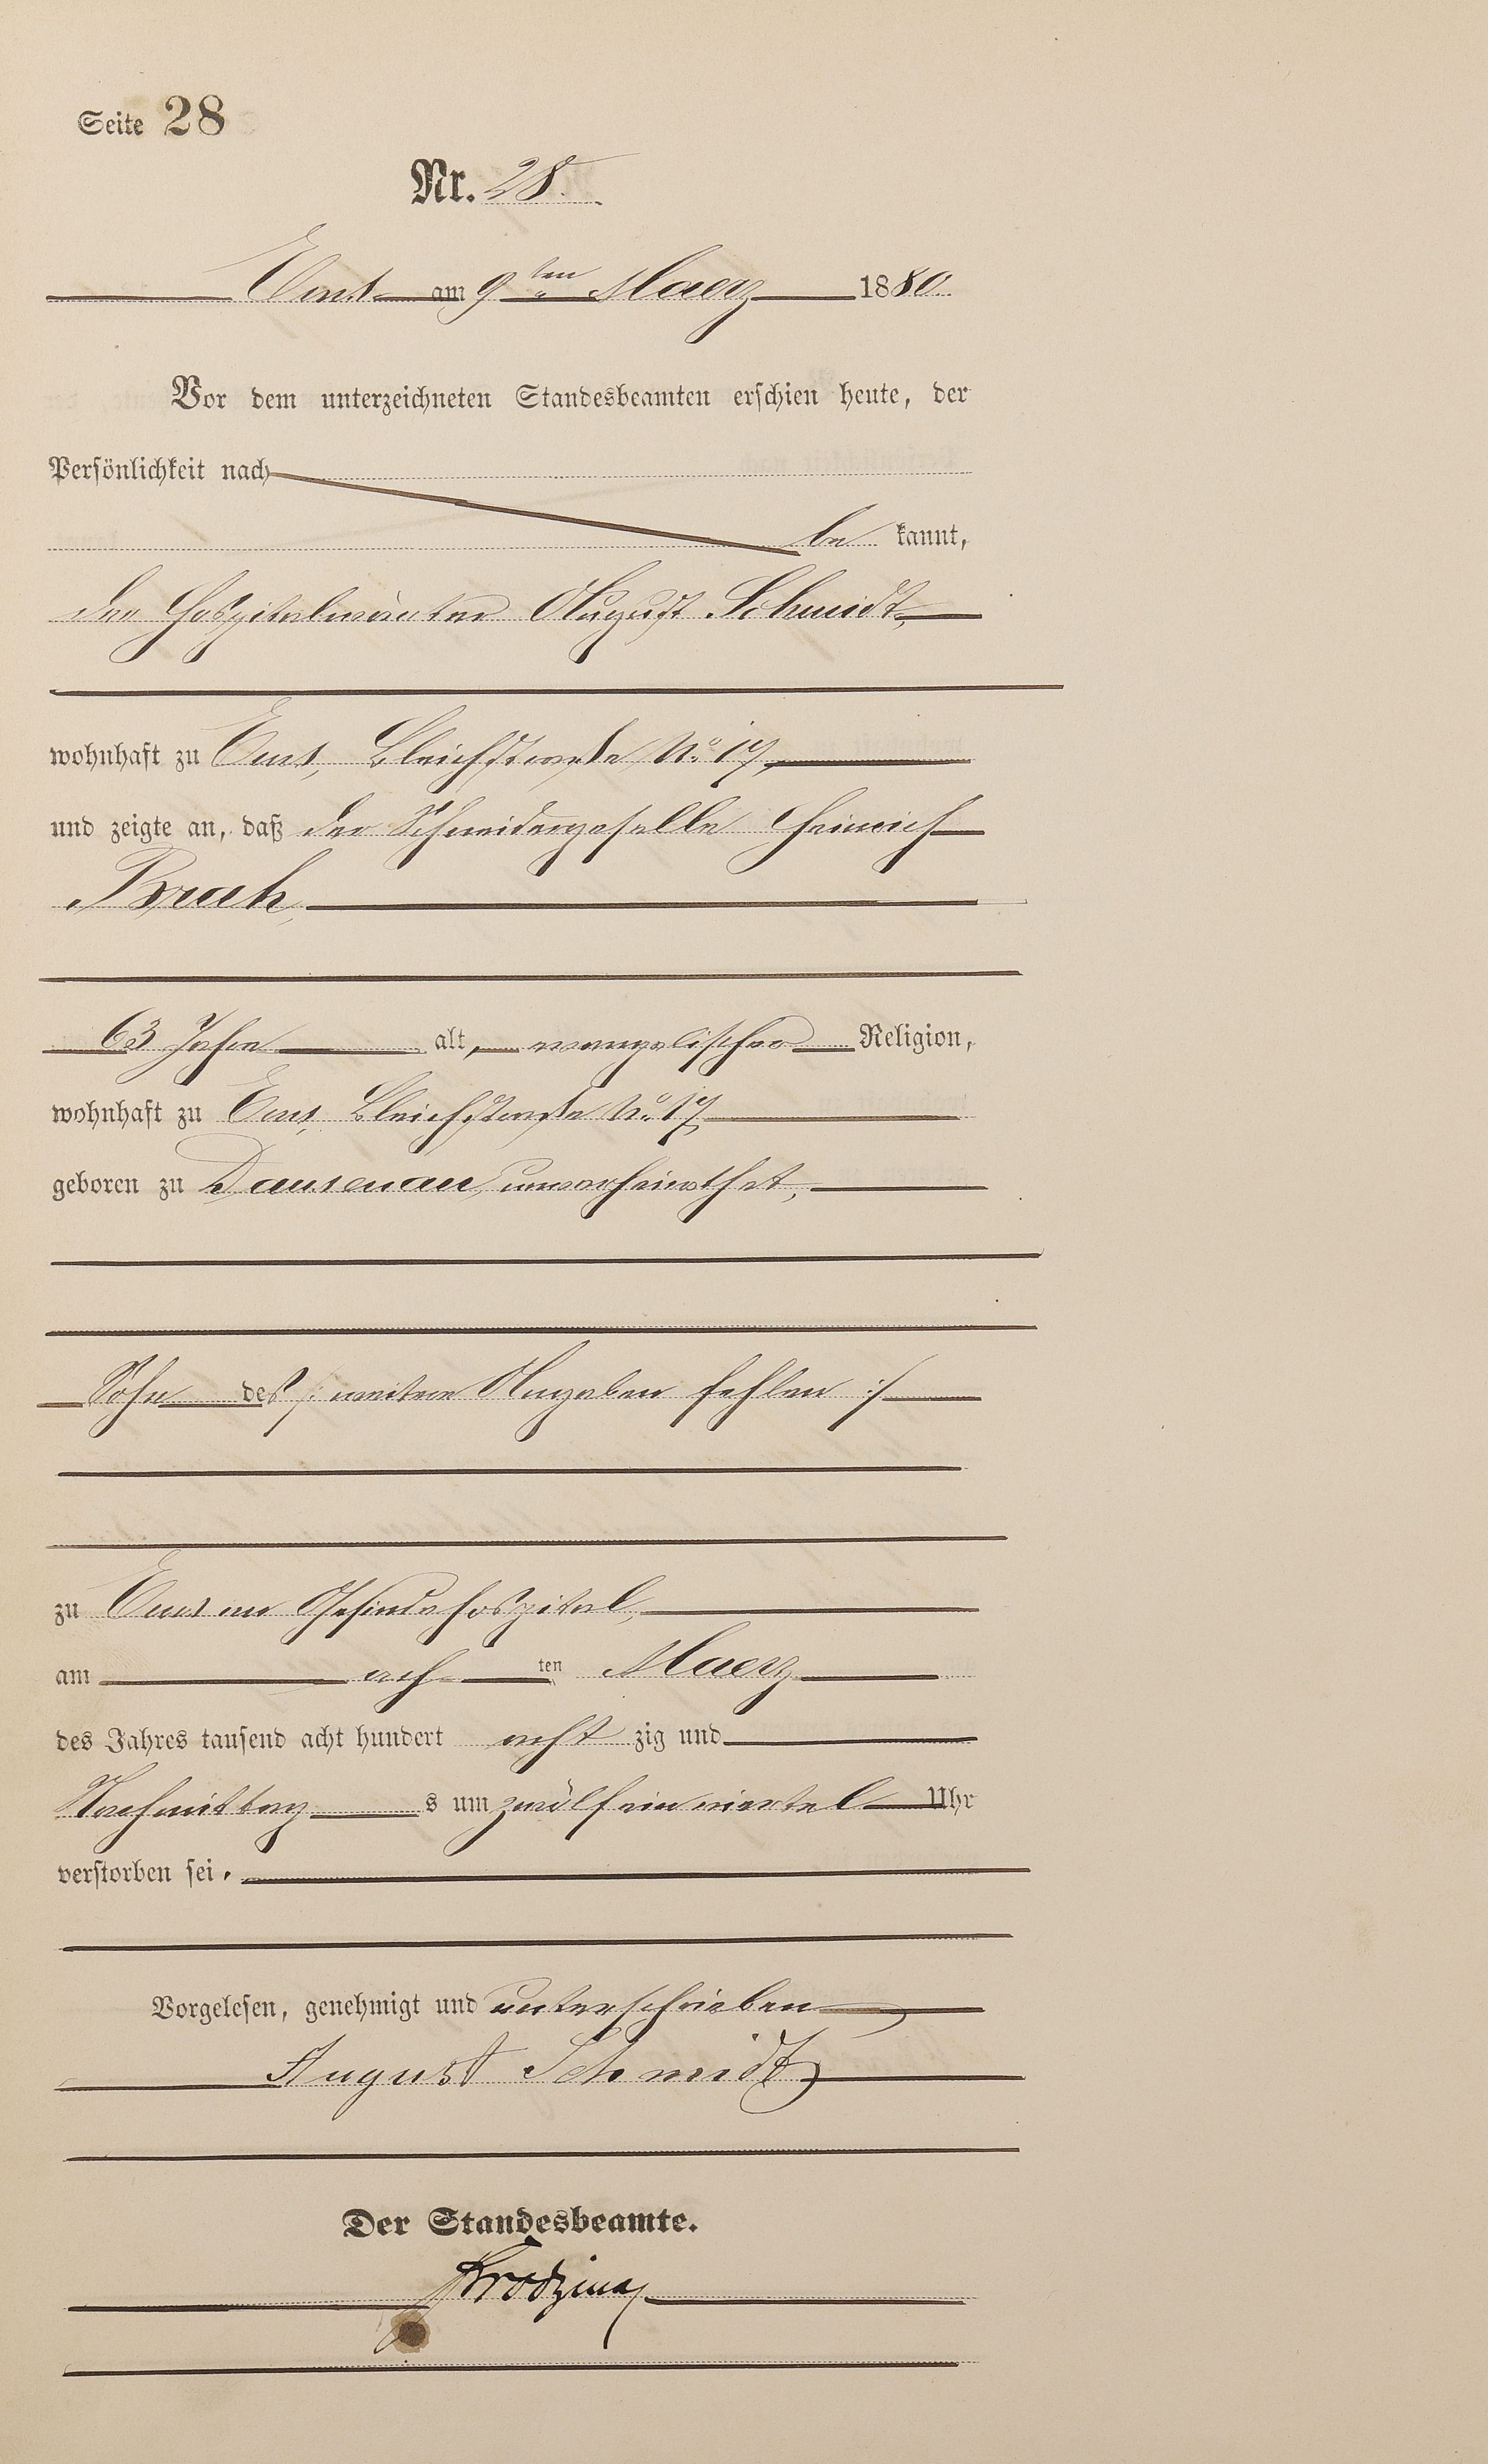 Seite 28
Nr. 28.
Ems am 9ten Maerz 1880.
Vor dem unterzeichneten Standesbeamten erschien heute, der
Persönlichkeit nach
be kannt,
der Hospitalwärter August Schmidt,
wohnhaft zu Ems, Bleichstraße No 17,
und zeigte an, daß der Schneidergeselle Heinrich
Brah,
63 Jahre alt, evangelischer Religion,
wohnhaft zu Ems, Bleichstraße No 17,
geboren zu Dausenau, unverheirathet,
Sohn des /: weitere Angaben fehlen :/
zu Ems im Gesindehospital,
am ach ten Maerz
des Jahres tausend acht hundert acht zig und
Nachmittag s um zwölf ein viertel Uhr
verstorben sei.
Vorgelesen, genehmigt und unterschrieben
August Schmidt
Der Standesbeamte.